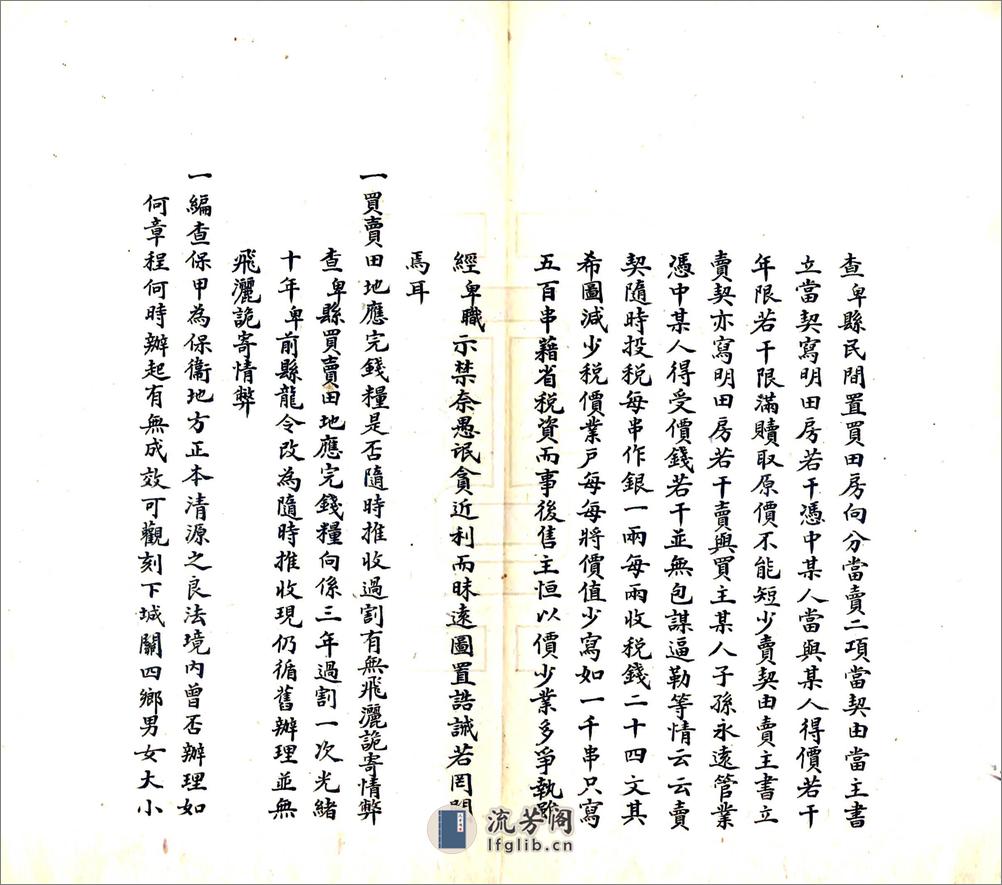 查卑縣民間置買田房向分當賣二項當契由當主書
立當契寫明田房若干憑中某人當與某人得價若干
年限若干限滿贖取原價不能短少賣契由賣主書立
賣契亦寫明田房若干賣與買主某人子孫永遠管業
憑中某人得受價錢若干並無包謀逼勒等情云云賣
契隨時投稅每串作銀一兩每兩收稅錢二十四文其
希圖減少稅價業戶每每將價值少寫如一千串只寫
五百串藉省稅資而事後售主恒以價少業多爭執雖
經卑職示禁奈愚氓貪近利而昧遠圖置誥誡若罔聞
焉耳
一買賣田地應完錢糧是否隨時推收過割有無飛灑詭寄情弊
查卑縣買賣田地應完錢糧向係三年過割一次光緒
十年卑前縣龍令改為隨時推收現仍循舊辦理並無
飛灑詭寄情弊
一編查保甲為保衛地方正本清源之良法境內曾否辦理如
何章程何時辦起有無成效可觀刻下城關四鄉男女大小
流芳阁
lfglib.cn